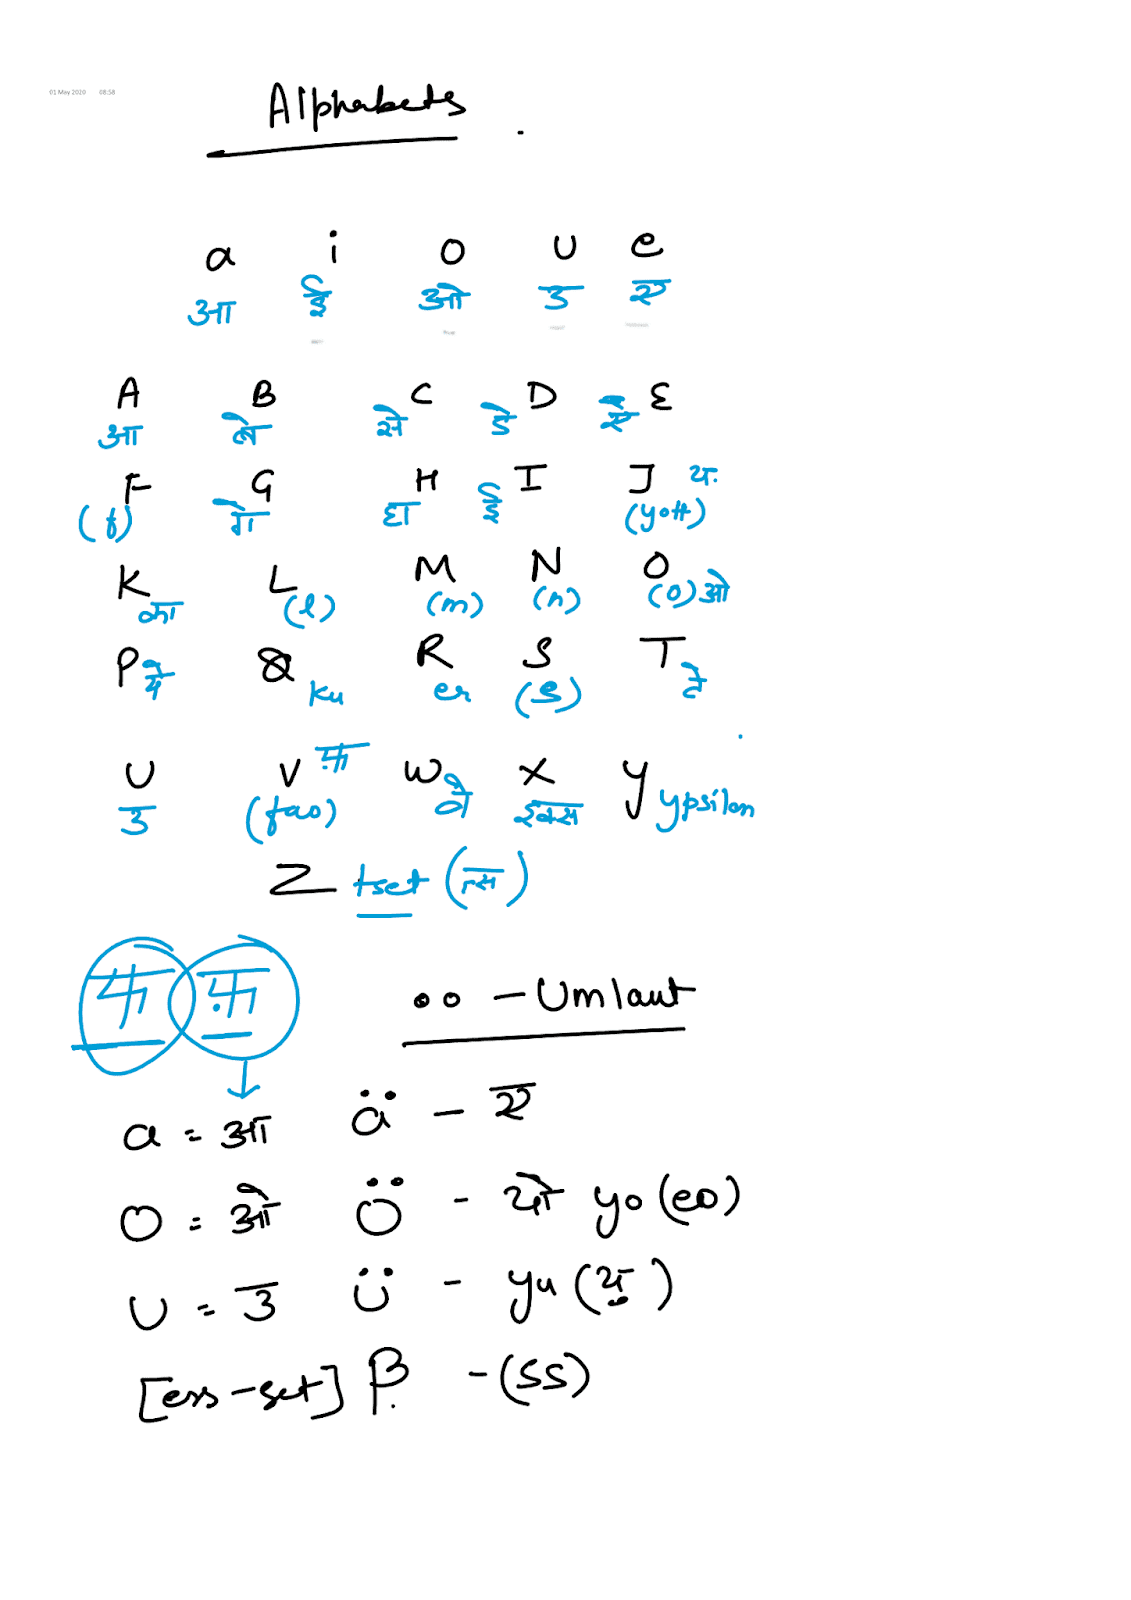 01 May 2020 08:58
Alphabets
a i o u e
आ ई ओ उ ए
A B C D E
आ बे से डे ए
F G H I J य.
(f) गे हा ई (yott)
K L M N O
का (l) (m) (n) (o) ओ
P Q R S T
पे ku er (s) ते
U V फ़ W X Y
उ (fao) वे इक्स ypsilon
Z tset (त्स)
फ फ़ •• – Umlaut
a = आ ä – ए
o = ओ ö – यो yo (eo)
u = उ ü – yu (यु)
[ess-set] β – (ss)